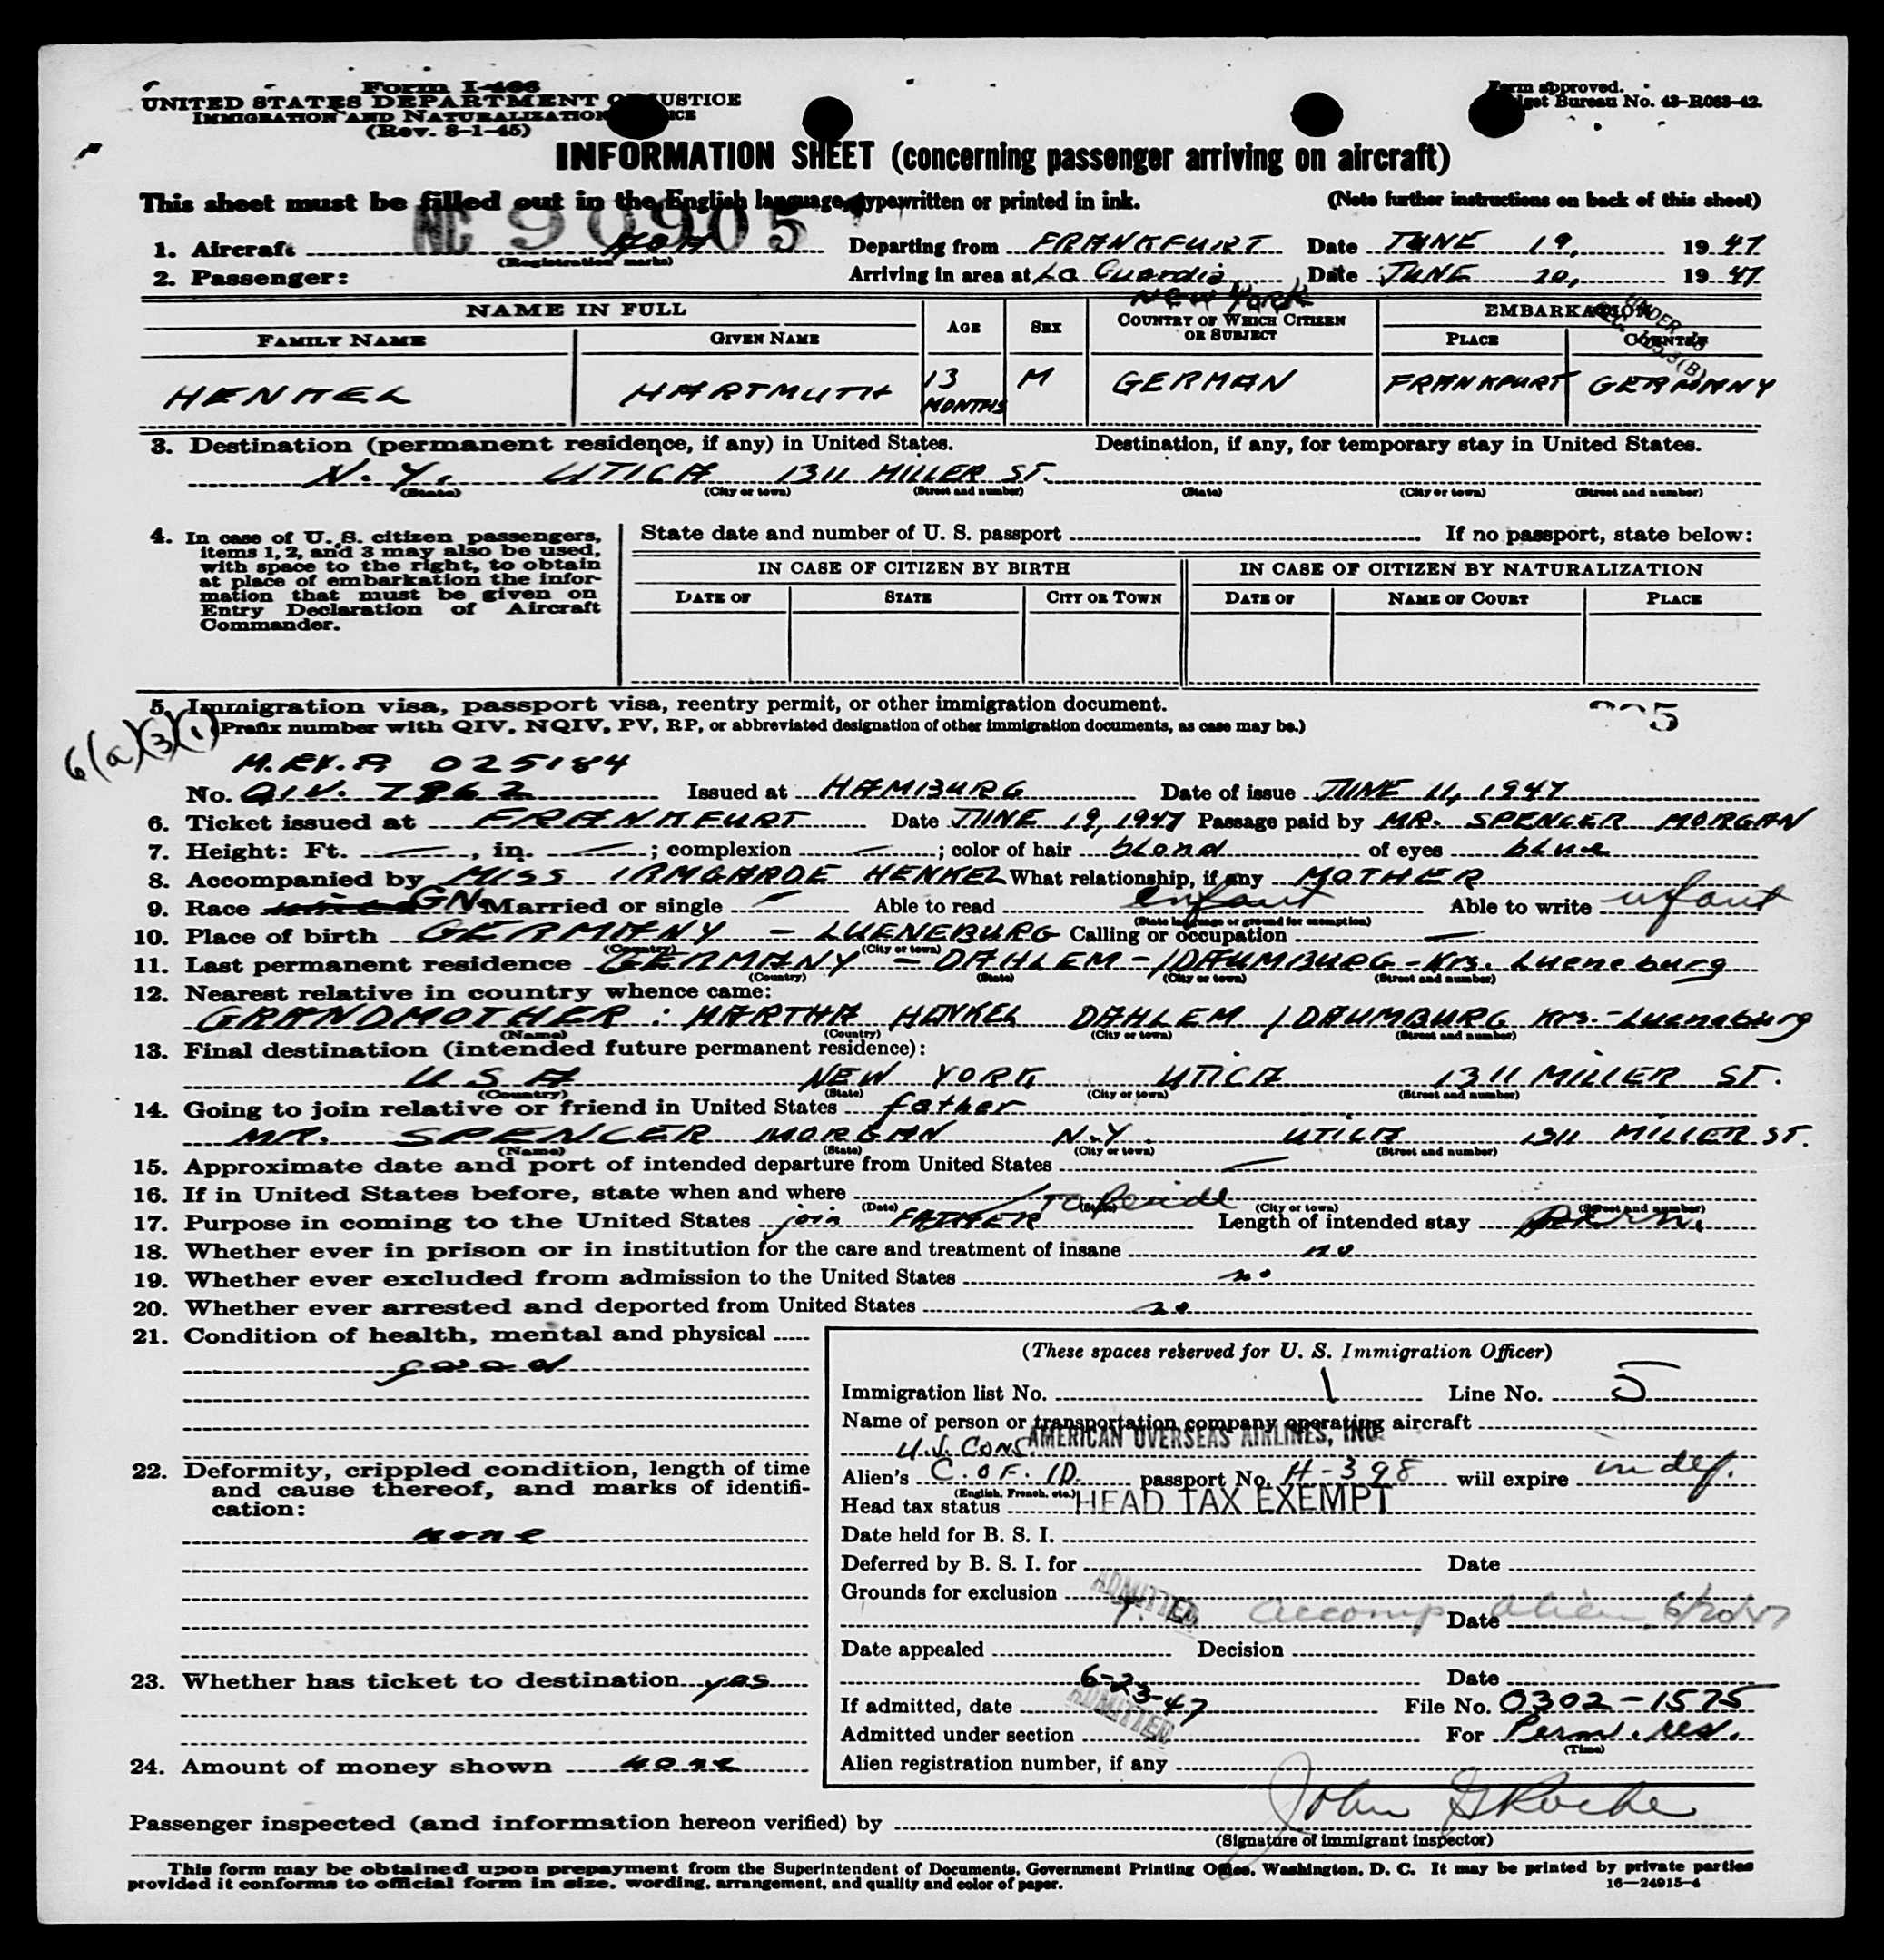 Form I-466
UNITED STATES DEPARTMENT OF JUSTICE
IMMIGRATION AND NATURALIZATION
(Rev. 8-1-45)
Form approved.
Budget Bureau No. 43-R063-42.
INFORMATION SHEET (concerning passenger arriving on aircraft)
This sheet must be filled out in the English language, typewritten or printed in ink. (Note further instructions on back of this sheet)
NC 90905
1. Aircraft AOA Departing from FRANKFURT Date JUNE 19, 1947
(Registration marks)
2. Passenger: Arriving in area at La Guardia Date JUNE 20, 1947
NEW YORK
NAME IN FULL AGE SEX COUNTRY OF WHICH CITIZEN OR SUBJECT EMBARKATION
FAMILY NAME GIVEN NAME PLACE COUNTRY
UNDER 16
SEC. 105.3(B)
HENKEL HARTMUTH 13 MONTHS M GERMAN FRANKFURT GERMANY
3. Destination (permanent residence, if any) in United States. Destination, if any, for temporary stay in United States.
N.Y. UTICA 1311 MILLER ST.
(State) (City or town) (Street and number) (State) (City or town) (Street and number)
4. In case of U. S. citizen passengers,
items 1, 2, and 3 may also be used,
with space to the right, to obtain
at place of embarkation the infor-
mation that must be given on
Entry Declaration of Aircraft
Commander.
State date and number of U. S. passport If no passport, state below:
IN CASE OF CITIZEN BY BIRTH IN CASE OF CITIZEN BY NATURALIZATION
DATE OF STATE CITY OR TOWN DATE OF NAME OF COURT PLACE
5. Immigration visa, passport visa, reentry permit, or other immigration document.
(Prefix number with QIV, NQIV, PV, RP, or abbreviated designation of other immigration documents, as case may be.)
6(a)(3)(1)
025184
No. QIV. 7862 Issued at HAMBURG Date of issue JUNE 11, 1947
6. Ticket issued at FRANKFURT Date JUNE 19, 1947 Passage paid by MR. SPENCER MORGAN
7. Height: Ft. —, in. —; complexion —; color of hair blond of eyes blue
8. Accompanied by MISS IRMGARDE HENKEL What relationship, if any MOTHER
9. Race GN. Married or single — Able to read infant Able to write infant
(State language or ground for exemption)
10. Place of birth GERMANY - LUENEBURG Calling or occupation —
(Country) (City or town)
11. Last permanent residence GERMANY - DAHLEM - /DAUMBURG - Krs. Lueneburg
(Country) (State) (City or town) (Street and number)
12. Nearest relative in country whence came:
GRANDMOTHER: MARTHA HENKEL DAHLEM / DAUMBURG Krs.-Lueneburg
(Name) (Country) (City or town) (Street and number)
13. Final destination (intended future permanent residence):
USA NEW YORK UTICA 1311 MILLER ST.
(Country) (State) (City or town) (Street and number)
14. Going to join relative or friend in United States father
MR. SPENCER MORGAN N.Y. UTICA 1311 MILLER ST.
(Name) (State) (City or town) (Street and number)
15. Approximate date and port of intended departure from United States —
16. If in United States before, state when and where —
(Date) (State) (City or town) (Street and number)
To Reside
17. Purpose in coming to the United States join FATHER Length of intended stay Perm.
18. Whether ever in prison or in institution for the care and treatment of insane no
19. Whether ever excluded from admission to the United States no
20. Whether ever arrested and deported from United States no
21. Condition of health, mental and physical
good
22. Deformity, crippled condition, length of time
and cause thereof, and marks of identifi-
cation:
none
23. Whether has ticket to destination yes
24. Amount of money shown none
(These spaces reserved for U. S. Immigration Officer)
Immigration list No. 1 Line No. 5
Name of person or transportation company operating aircraft
AMERICAN OVERSEAS AIRLINES, INC.
U.S. CONS.
Alien's C. OF. ID. passport No. H-398 will expire indef.
(English, French, etc.)
Head tax status HEAD TAX EXEMPT
Date held for B. S. I.
Deferred by B. S. I. for Date
Grounds for exclusion
ADMITTED
accomp alien 6/20/47 Date
Date appealed Decision
Date
If admitted, date 6-23-47 File No. 0302-1575
ADMITTED
Admitted under section For Perm. res.
(Time)
Alien registration number, if any
Passenger inspected (and information hereon verified) by John G Roche
(Signature of immigrant inspector)
This form may be obtained upon prepayment from the Superintendent of Documents, Government Printing Office, Washington, D. C. It may be printed by private parties
provided it conforms to official form in size, wording, arrangement, and quality and color of paper. 16—24915-4